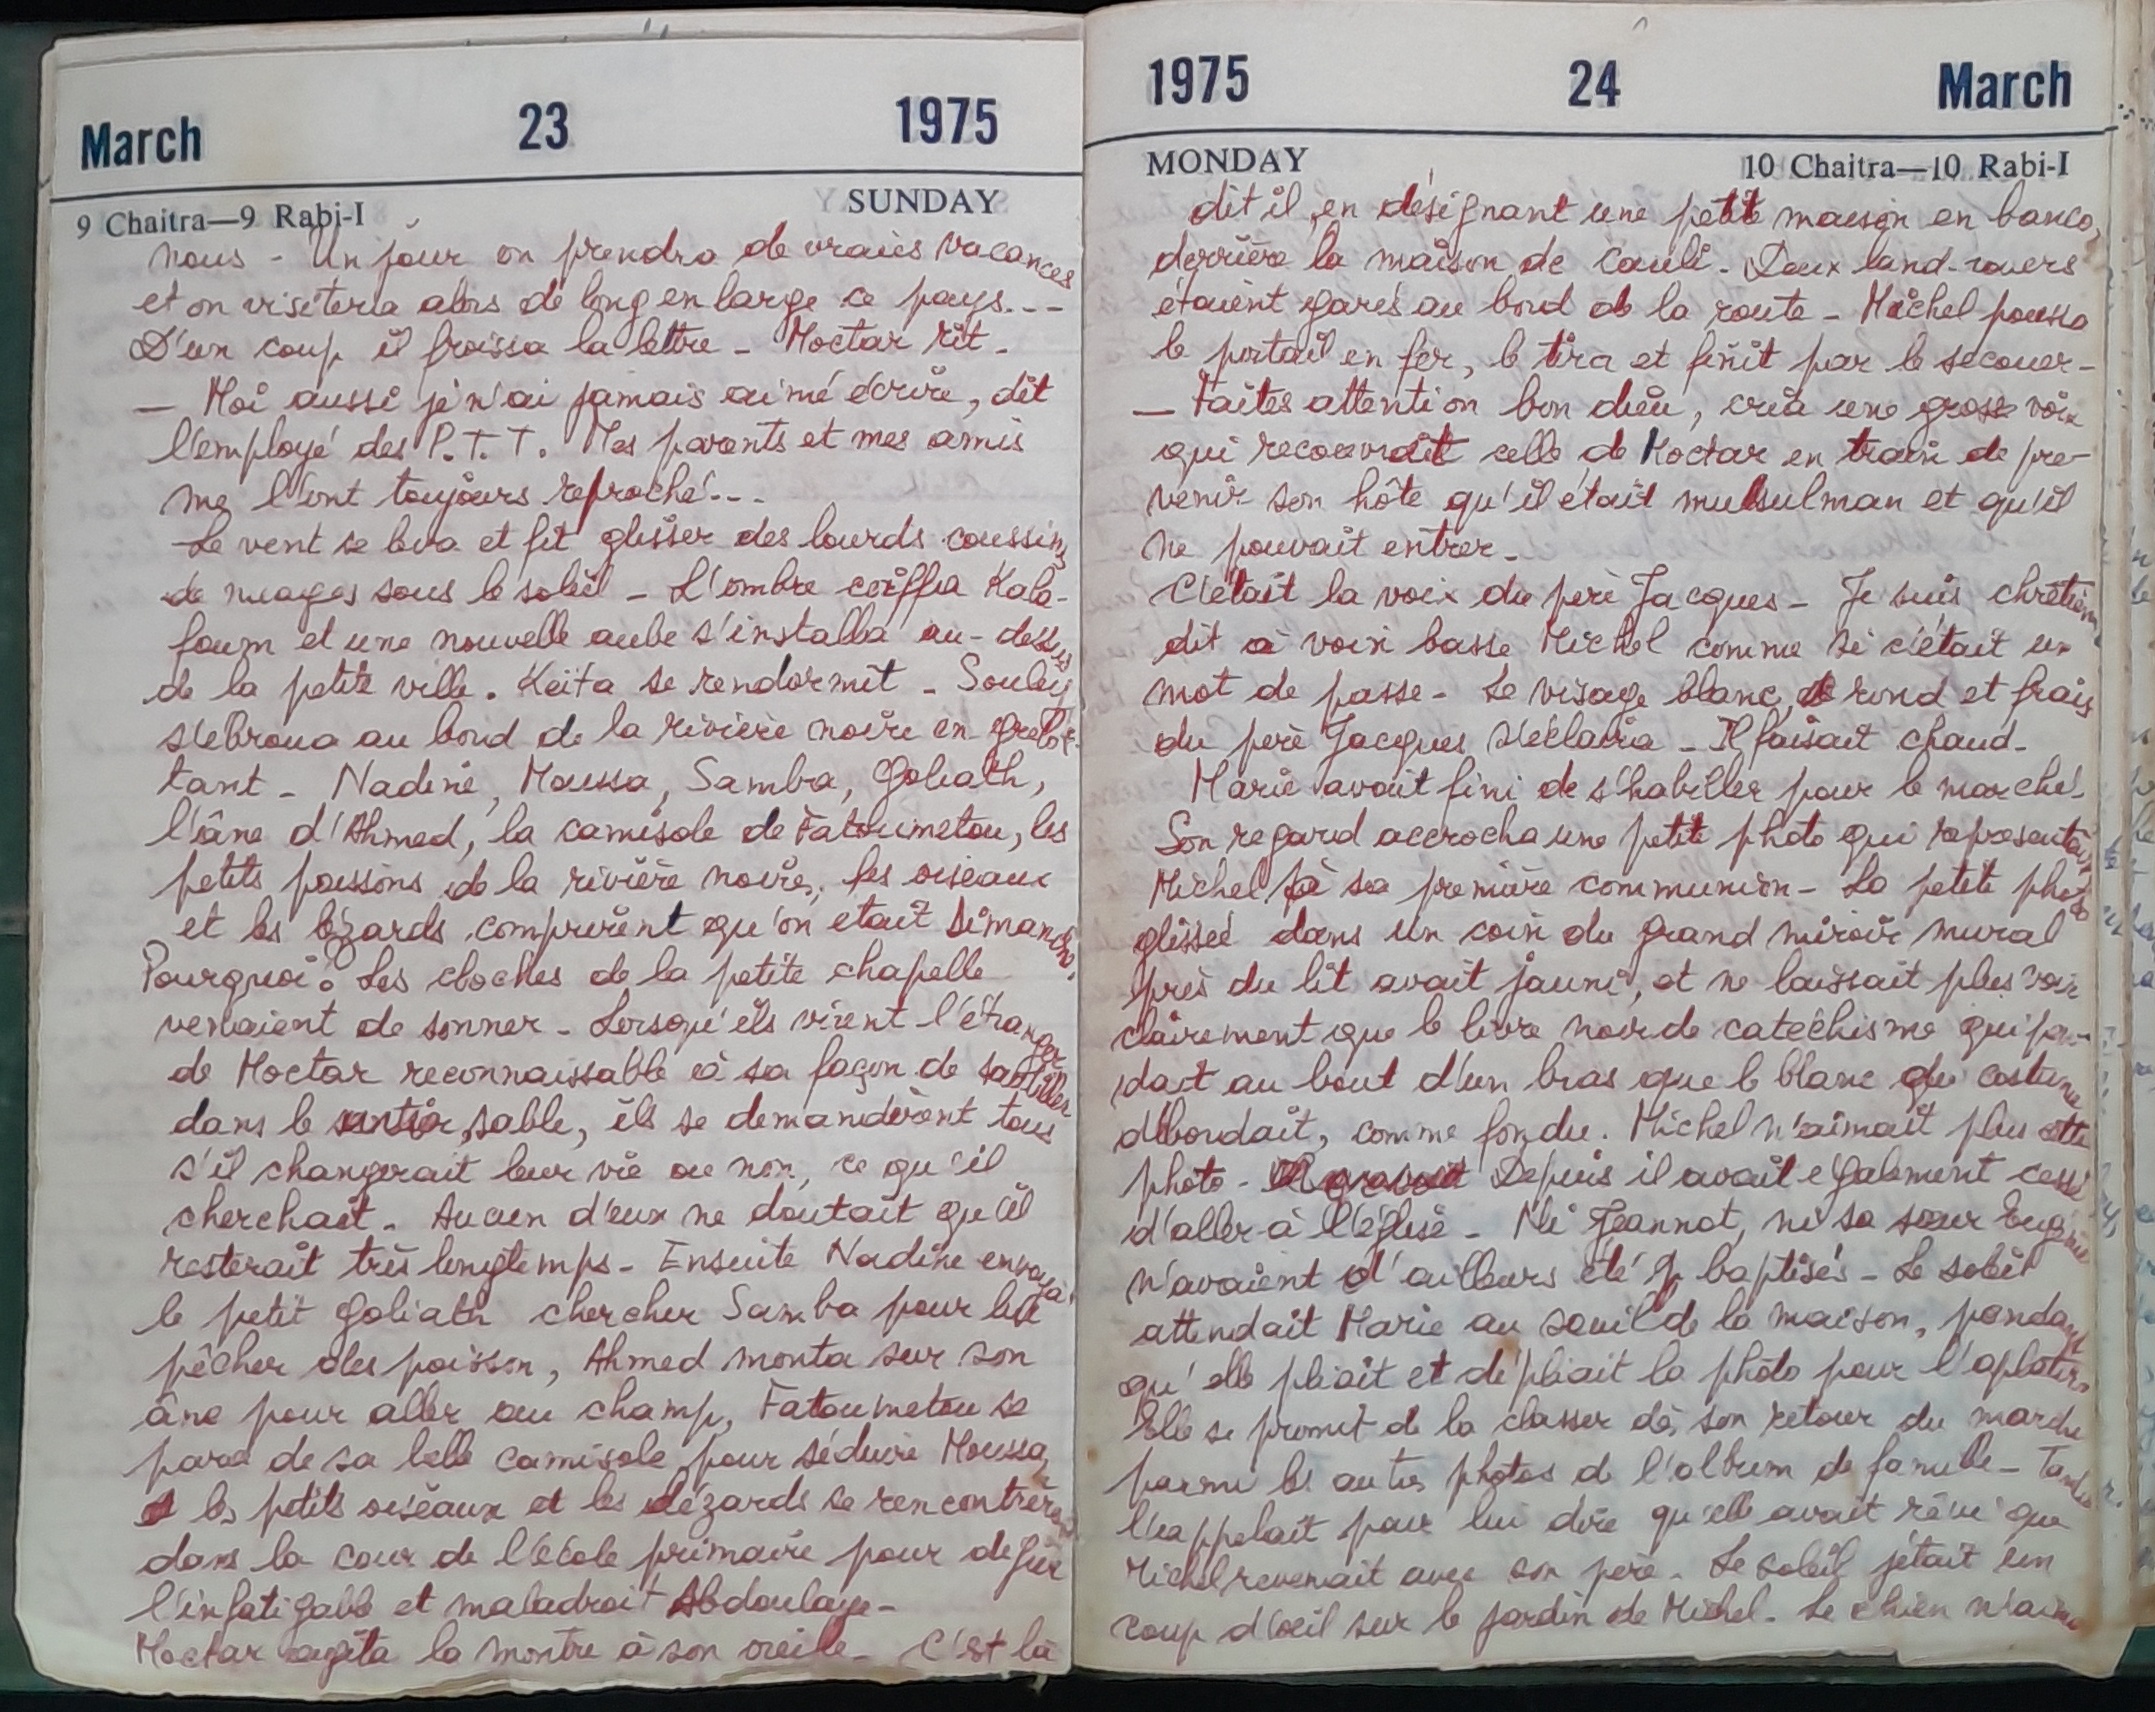 March 23 1975
9 Chaitra—9 Rabi-I SUNDAY
nous - Un jour on prendra de vraies vacances
et on visitera alors de long en large ce pays...
D'un coup il froissa la lettre - Moctar rit.
— Moi aussi je n'ai jamais aimé écrire, dit
l'employé des P.T.T. Mes parents et mes amis
me l'ont toujours reproché...
Le vent se leva et fit glisser des lourds coussins
de nuages sous le soleil - L'ombre coiffa Kala-
foum et une nouvelle aube s'installa au-dessus
de la petite ville. Keïta se rendormit - Souley
s'ébroua au bord de la rivière noire en grelot-
tant - Nadine, Moussa, Samba, Goliath,
l'âne d'Ahmed, la camisole de Fatoumetou, les
petits poissons de la rivière noire, les oiseaux
et les lézards comprirent qu'on était Dimanche.
Pourquoi? Les cloches de la petite chapelle
venaient de sonner - Lorsqu'ils virent l'étranger
de Moctar reconnaissable à sa façon de
dans le sable, ils se demandèrent tous
s'il changerait leur vie ou non, ce qu'il
cherchait - Aucun d'eux ne doutait qu'il
resterait très longtemps - Ensuite Nadine envoya
le petit Goliath chercher Samba pour
pêcher des poisson, Ahmed monta sur son
âne pour aller au champ, Fatoumetou se
para de sa belle camisole pour séduire Moussa,
les petits oiseaux et les lézards se rencontrèrent
dans la cour de l'école primaire pour défier
l'infatigable et maladroit Abdoulaye -
Moctar agita la montre à son oreille - C'est là
1975 24 March
MONDAY 10 Chaitra—10 Rabi-I
dit il, en désignant une petite maison en banco,
derrière la maison de Couli - Deux land-rovers
étaient garés au bord de la route - Michel poussa
le portail en fer, le tira et finit par le secouer -
— Faites attention bon dieu, cria une grosse voix
qui recouvrait celle de Moctar en train de pre-
venir son hôte qu'il était mulsulman et qu'il
ne pouvait entrer -
C'était la voix du père Jacques - Je suis chrétien
dit à voix basse Michel comme si c'était un
mot de passe - Le visage blanc, rond et frais
du père Jacques s'éclaira - Il faisait chaud -
Marie avait fini de s'habiller pour le marché -
Son regard accrocha une petite photo qui représentait
Michel à sa première communion - La petite photo
glissée dans un coin du grand miroir mural
près du lit avait jauni, et ne laissait plus voir
clairement que le livre noir de catéchisme qui pen-
dait au bout d'un bras que le blanc du costume
débordait, comme fondu. Michel n'aimait plus cette
photo - Depuis il avait également cessé
d'aller à l'église - Ni Jeannot, ni sa sœur Eugénie
n'avaient d'ailleurs été baptisés - Le soleil
attendait Marie au seuil de la maison, pendant
qu'elle pliait et dépliait la photo pour l'aplatir.
Elle se promit de la classer dès son retour du marché
parmi les autres photos de l'album de famille -
l'appelait pour lui dire qu'elle avait rêvé que
Michel revenait avec son père - Le soleil jetait un
coup d'oeil sur le jardin de Michel - Le chien